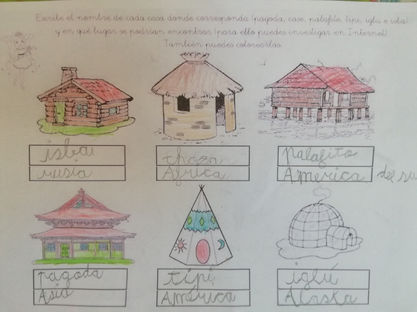 Escribe el nombre de cada casa donde corresponda (pagoda, casa, palafito, tipi, iglú e isba)
y en qué lugar se podrían encontrar (para ello puedes investigar en Internet).
También puedes colorearlas.
isba
rusia
choza
África
Palafito
America del su
pagoda
Asia
tipi
América
iglu
Alaska